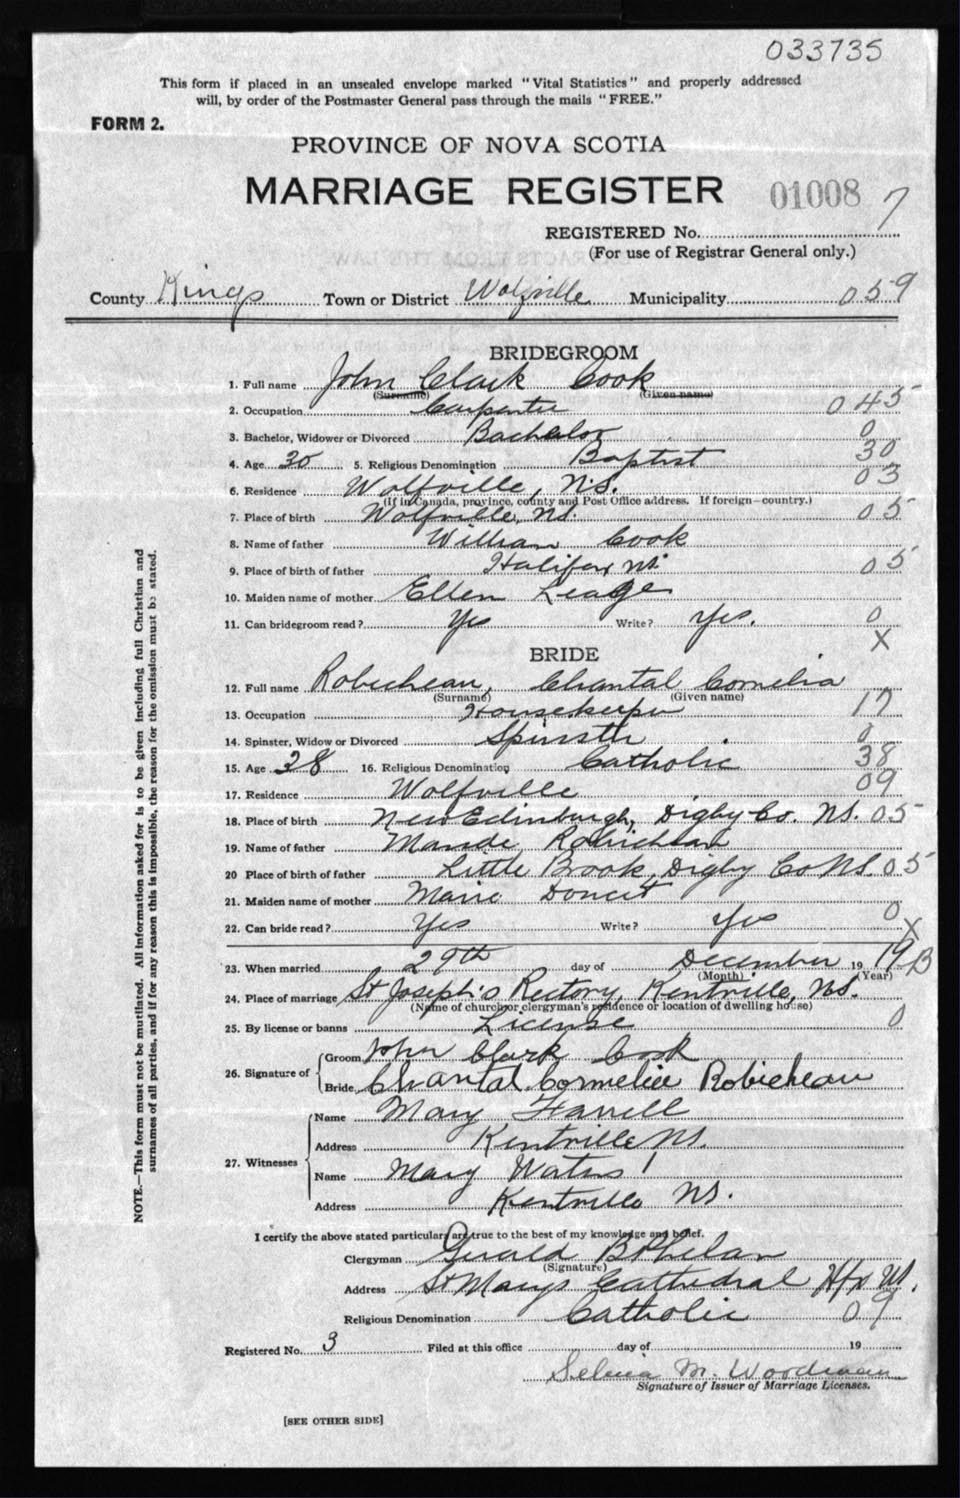 033735
This form if placed in an unsealed envelope marked "Vital Statistics" and properly addressed
will, by order of the Postmaster General pass through the mails "FREE."
FORM 2.
PROVINCE OF NOVA SCOTIA
MARRIAGE REGISTER 01008 7
REGISTERED No.
(For use of Registrar General only.)
County Kings Town or District Wolfville Municipality 059
BRIDEGROOM
1. Full name John Clark Cook
(Surname) (Given name)
2. Occupation Carpenter 045
3. Bachelor, Widower or Divorced Bachelor 0
4. Age 30 5. Religious Denomination Baptist 30
6. Residence Wolfville, N.S. 03
(If in Canada, province, county and Post Office address. If foreign—country.)
7. Place of birth Wolfville, NS. 05
8. Name of father William Cook
9. Place of birth of father Halifax NS 05
10. Maiden name of mother Ellen
11. Can bridegroom read? Yes Write? Yes. 0
X
BRIDE
12. Full name Robicheau, Chantal Cornelia
(Surname) (Given name)
13. Occupation Housekeeper 17
14. Spinster, Widow or Divorced Spinster 0
15. Age 38 16. Religious Denomination Catholic 38
17. Residence Wolfville 09
18. Place of birth New Edinburgh, Digby Co. NS. 05
19. Name of father Mande Robicheau
20 Place of birth of father Little Brook, Digby Co NS. 05
21. Maiden name of mother Marie Doucet
22. Can bride read? Yes Write? Yes 0
X
23. When married 29th day of December 19
(Month) (Year)
24. Place of marriage St Joseph's Rectory, Kentville, NS.
(Name of church or clergyman's residence or location of dwelling house)
25. By license or banns License 0
26. Signature of Groom John Clark Cook
Bride Chantal Cormelice Robicheau
27. Witnesses Name Mary Farrell
Address Kentville NS.
Name Mary Waters
Address Kentville NS.
I certify the above stated particulars are true to the best of my knowledge and belief.
Clergyman Gerald B Phelan
(Signature)
Address St Marys Cathedral Hfx NS.
Religious Denomination Catholic 09
Registered No. 3 Filed at this office day of 19
Selena M. Woodman
Signature of Issuer of Marriage Licenses.
[SEE OTHER SIDE]
NOTE.—This form must not be mutilated. All information asked for is to be given including full Christian and
surnames of all parties, and if for any reason this is impossible, the reason for the omission must be stated.